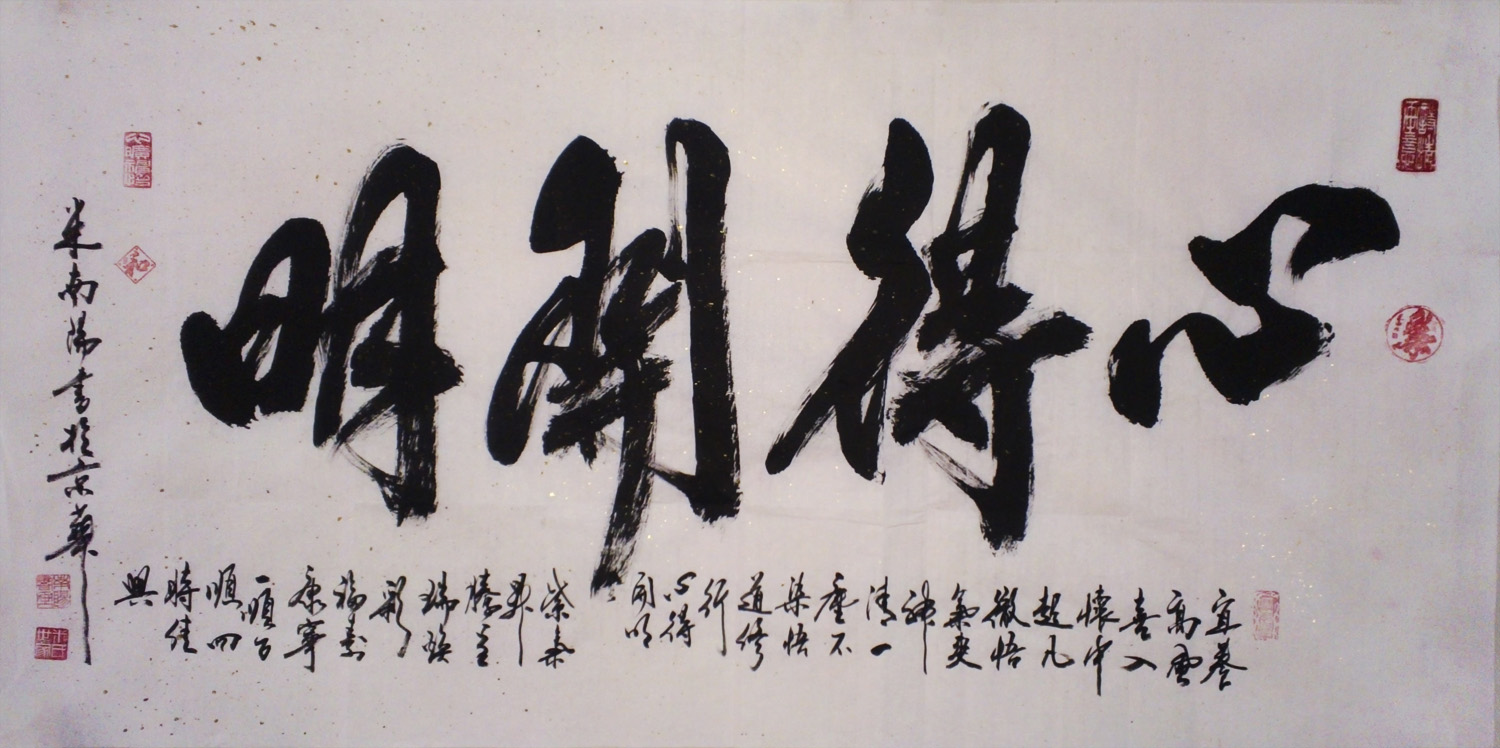 心得開明
宜
高
喜入
懷中
超凡
微悟
氣爽
神
清一
塵不
染悟
道修
行
心得
開明
紫
昇
騰呈
瑞
彩
福壽
康寧
一順百
順四
時佳
興
米南陽書於京華